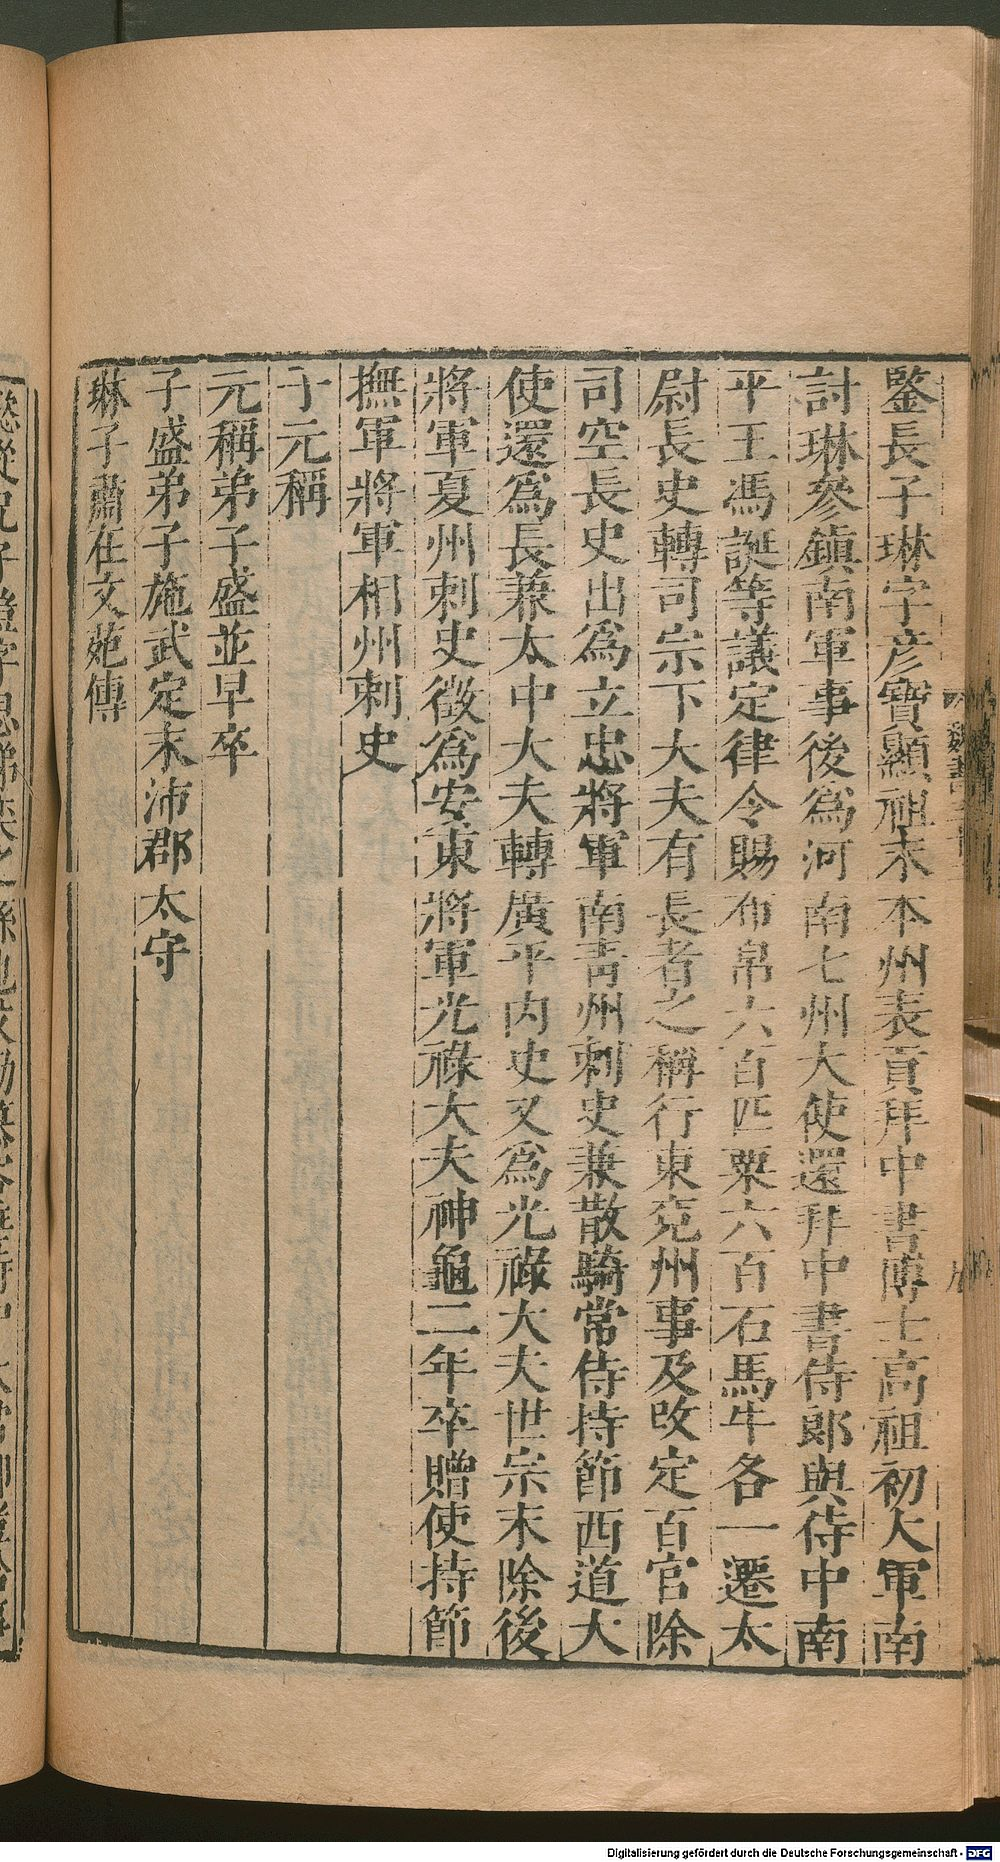 鑒長子琳字彥寶顯祖末本州表貢拜中書博士高祖初大軍南
討琳參鎮南軍事後為河南七州大使還拜中書侍郎與侍中南
平王馮誕等議定律令賜布帛六百匹粟六百石馬牛各一遷太
尉長史轉司宗下大夫有長者之稱行東兗州事及改定百官除
司空長史出為立忠將軍南青州刺史兼散騎常侍持節西道大
使還為長兼太中大夫轉廣平內史又為光祿大夫世宗末除後
將軍夏州刺史徵為安東將軍光祿大夫神龜二年卒贈使持節
撫軍將軍相州刺史
子元稱
元稱弟子盛並早卒
子盛弟子施武定末沛郡太守
琳子肅在文苑傳
魏書
Digitalisierung gefördert durch die Deutsche Forschungsgemeinschaft - DFG